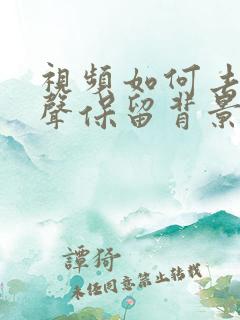 視頻如何去
聲保留背景
譚猗
未经同意禁止转载